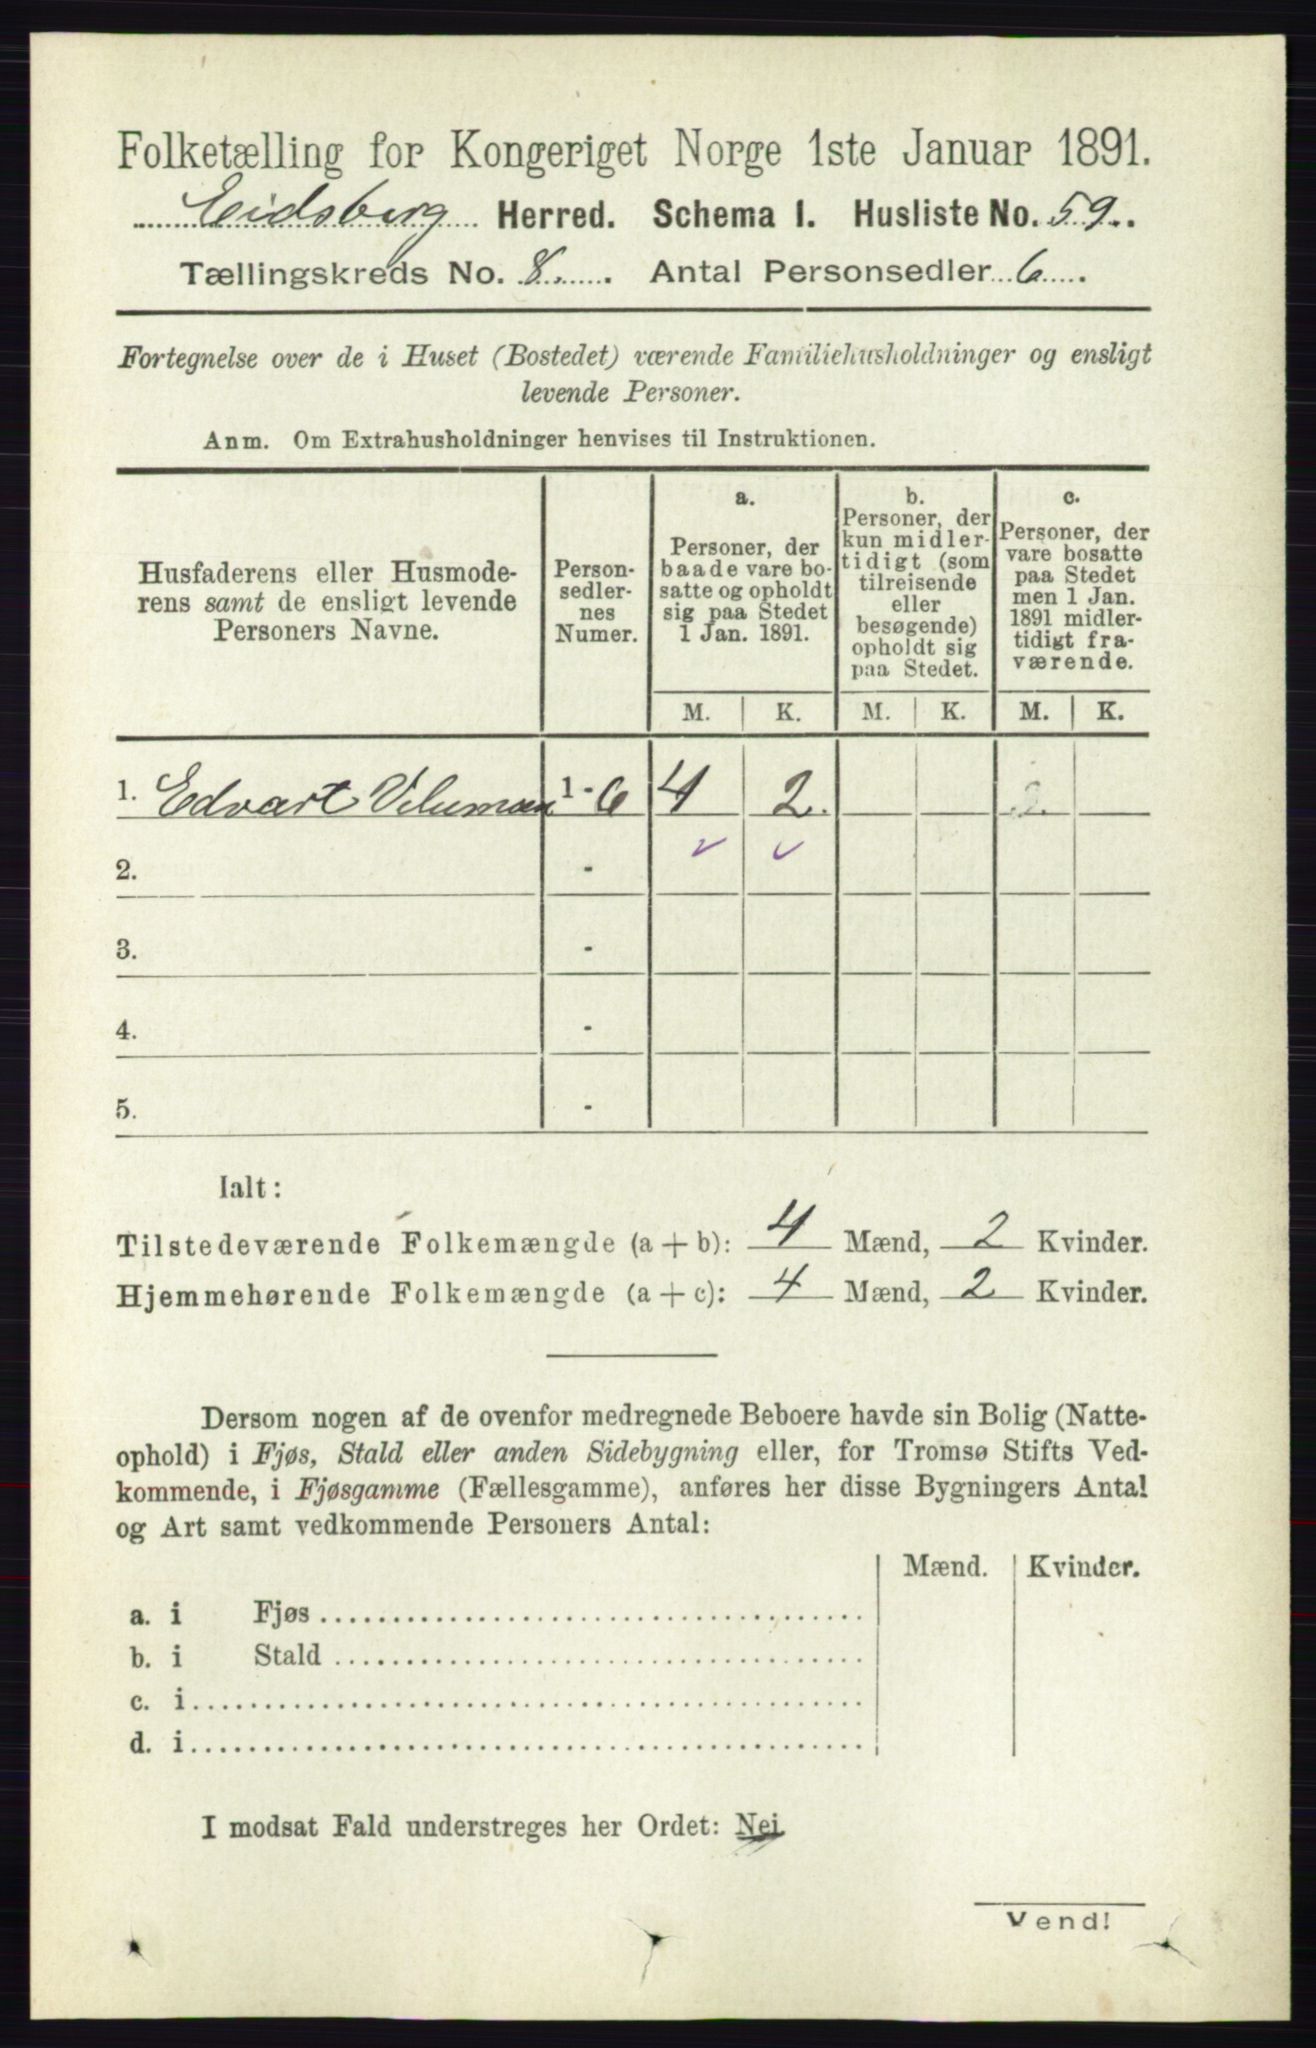 Folketælling for Kongeriget Norge 1ste Januar 1891.
Eidsberg Herred. Schema I. Husliste No. 59.
Tællingskreds No. 8. Antal Personsedler 6
Fortegnelse over de i Huset (Bostedet) værende Familiehusholdninger og ensligt
levende Personer.
Anm. Om Extrahusholdninger henvises til Instruktionen.
Husfaderens eller Husmode-
rens samt de ensligt levende
Personers Navne.
Person-
sedler-
nes
Numer.
a.
Personer, der
baade vare bo-
satte og opholdt
sig paa Stedet
1 Jan. 1891.
b.
Personer, der
kun midler-
tidigt (som
tilreisende
eller
besøgende)
opholdt sig
paa Stedet.
c.
Personer, der
vare bosatte
paa Stedet
men 1 Jan.
1891 midler-
tidigt fra-
værende.
M. K. M. K. M. K.
1. Edvart 1 - 6 4 2. 2.
2. -
3. -
4. -
5. -
Ialt:
Tilstedeværende Folkemængde (a + b): 4 Mænd, 2 Kvinder.
Hjemmehørende Folkemængde (a + c): 4 Mænd, 2 Kvinder.
Dersom nogen af de ovenfor medregnede Beboere havde sin Bolig (Natte-
ophold) i Fjøs, Stald eller anden Sidebygning eller, for Tromsø Stifts Ved-
kommende, i Fjøsgamme (Fællesgamme), anføres her disse Bygningers Antal
og Art samt vedkommende Personers Antal:
Mænd. Kvinder.
a. i Fjøs
b. i Stald
c. i
d. i
I modsat Fald understreges her Ordet: Nei
Vend!